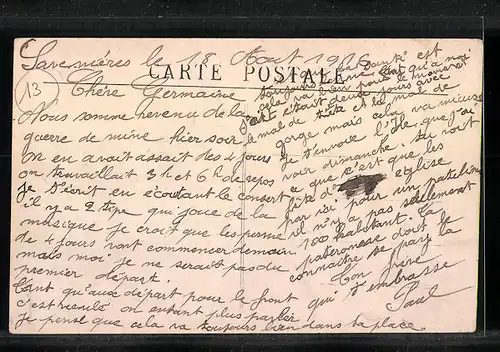 Savennières le 18 Août 19
CARTE POSTALE
13
Chère Germaine
Nous somme revenu de la
guerre de mine hier soir
on en avait assait des 4 jours
on travaillait 3h et 6h de repos
Je t'écrit en écoutant le consert
il y a 2 tipe qui joue de la
musique je croit que les perme
de 4 jours vont commencer demain
mais moi je ne serait pas du
premier départ.
Tant qu'aux départ pour le front
c'est reculé on entent plus parler
Je pense que cela va toujours bien dans ta place
toujours santé est
cela va bien pour qu'a moi
était deux jours avec
le mal de tête et la mal de
gorge mais cela va mieux
Je t'envoie l'Ile que j'ai
voir dimanche. Tu voit
ce que c'est que les
église
par ici pour un patelin
il n'y a pas seulement
100 habitant. la
pateronese doit le
connaître se pays la
Ton frère
qui t'embrasse
Paul